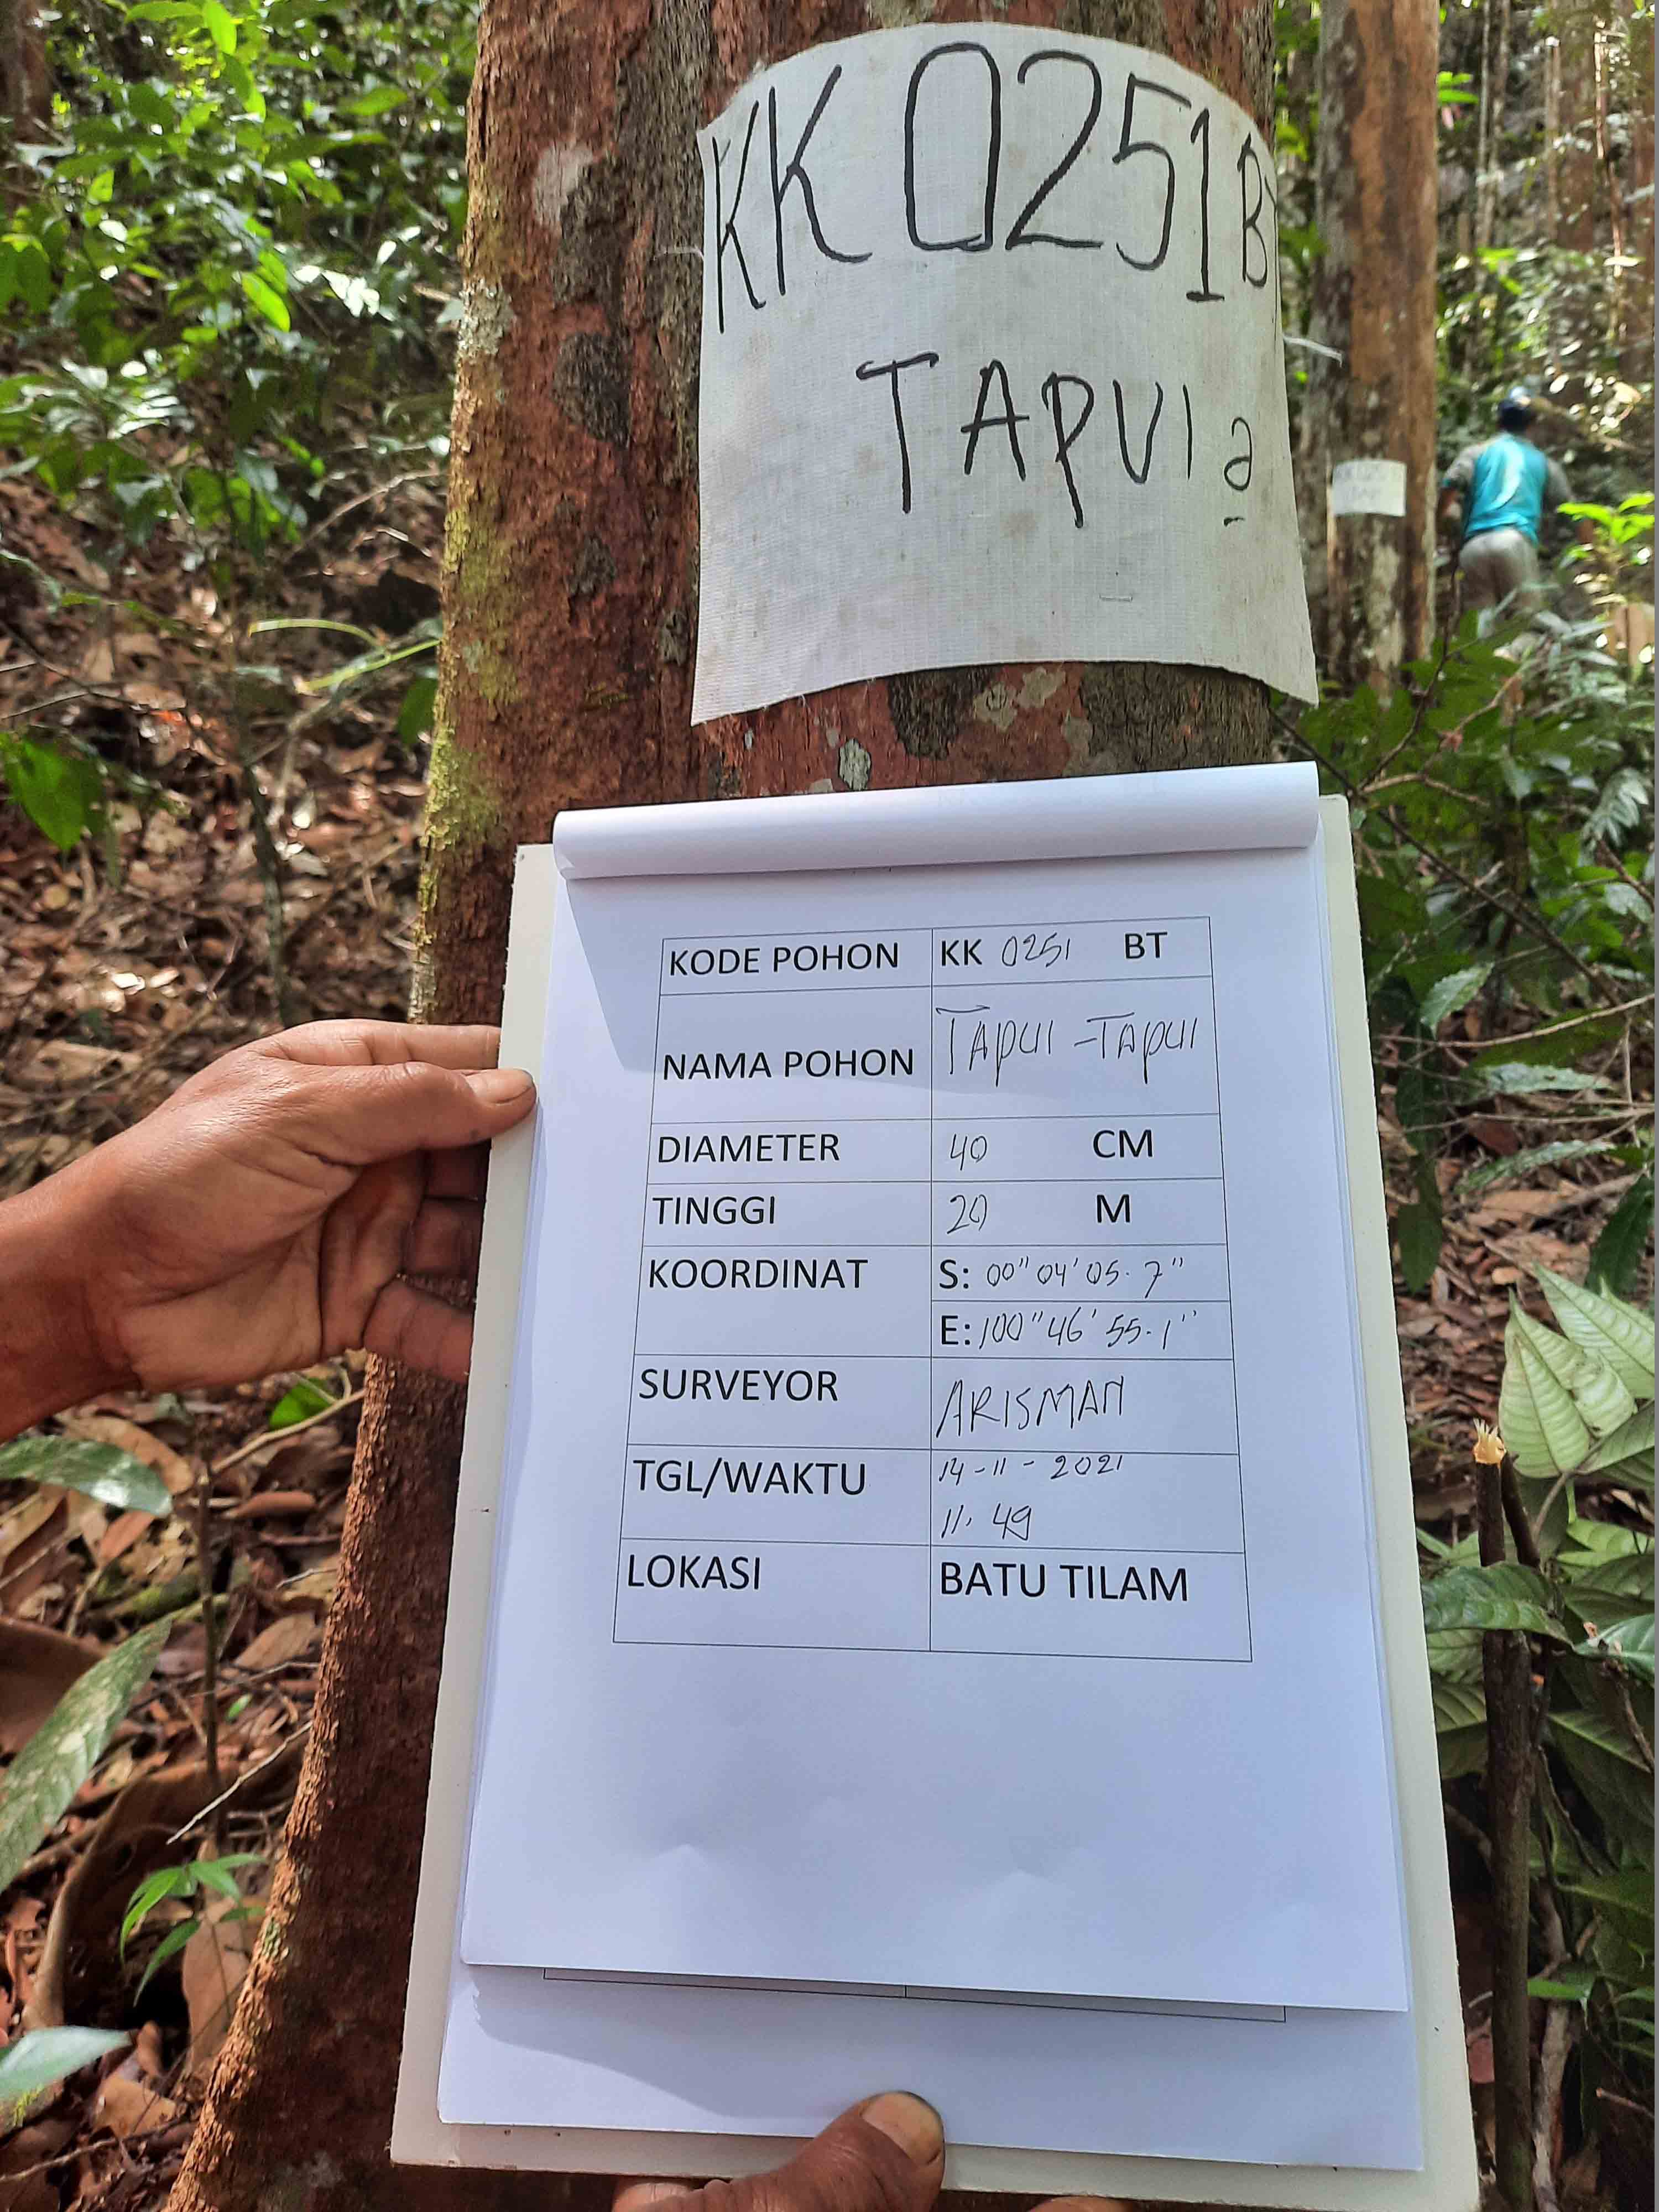 KK 0251 BT
TAPUI 2
KODE POHON KK 0251 BT
NAMA POHON TAPUI - TAPUI
DIAMETER 40 CM
TINGGI 20 M
KOORDINAT S: 00" 04' 05.7"
E: 100" 46' 55.1"
SURVEYOR ARISMAN
TGL/WAKTU 14-11-2021
11.49
LOKASI BATU TILAM